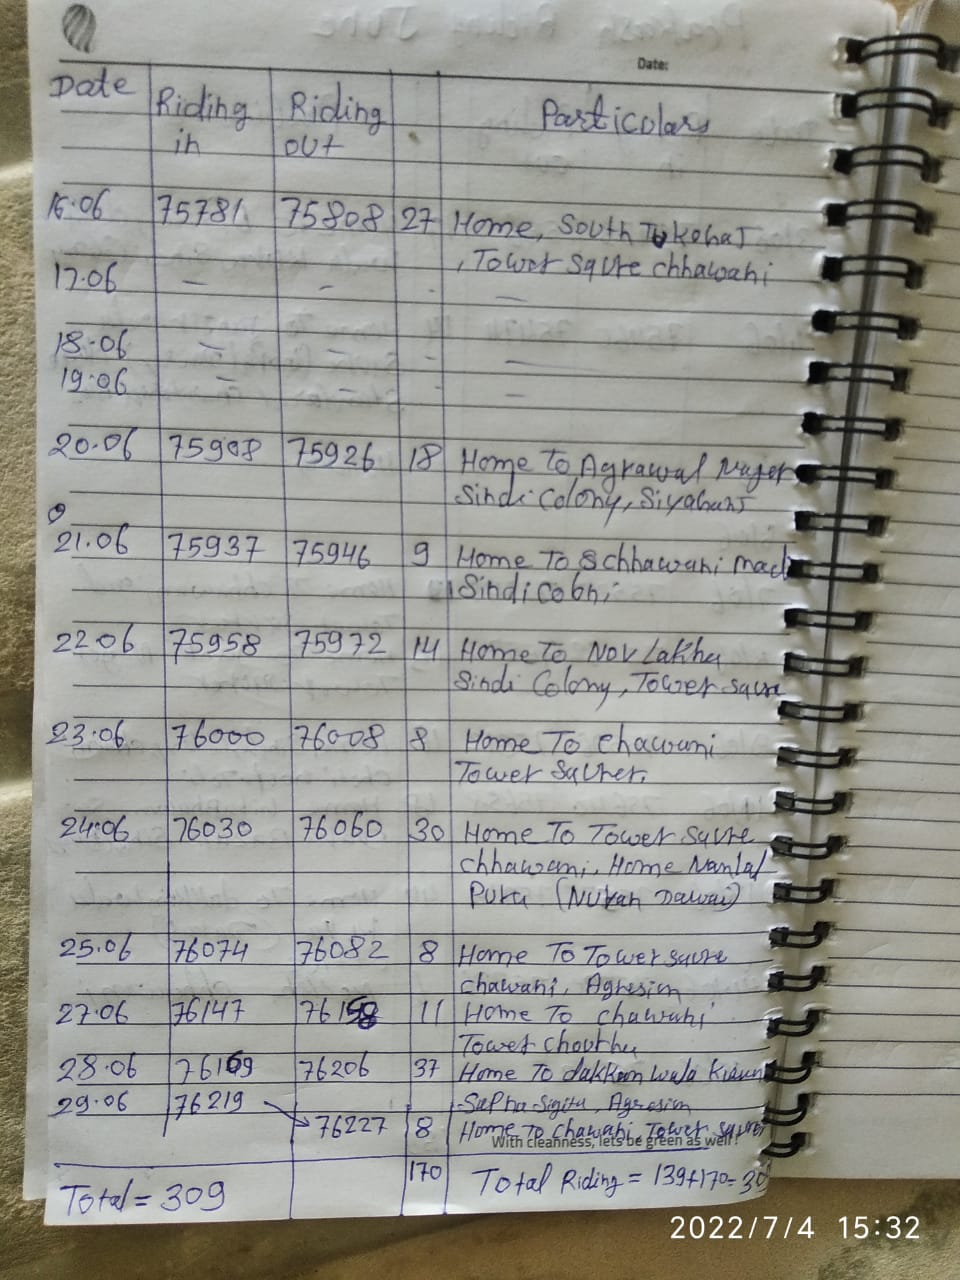 Date:
Date Riding in Riding out Particolars
16.06 75781 75808 27 Home, South
, Tower Squre chhawani
17.06 — - - —
18.06 — - —
19.06 — — - —
20.06 75908 75926 18 Home To Agrawal Nager
Sindi Colony, Siyaganj
21.06 75937 75946 9 Home To chhawani
Sindi
22.06 75958 75972 14 Home To Nov Lakha
Sindi Colony, Tower Squre
23.06 76000 76008 8 Home To Chawani
Tower
24.06 76030 76060 30 Home To Tower Squre
chhawani, Home Nanlal
Pura (Nukan Dawai)
25.06 76074 76082 8 Home To Tower Squre
chawani, Agresion
27.06 76147 76158 11 Home To chawani
Tower
28.06 76169 76206 37 Home To dakkan wala
Agresion
29.06 76219 76227 8 Home To Chawani, Tower
With cleanness, lets be green as well!
170 Total Riding = 139+170=
Total = 309
2022/7/4 15:32